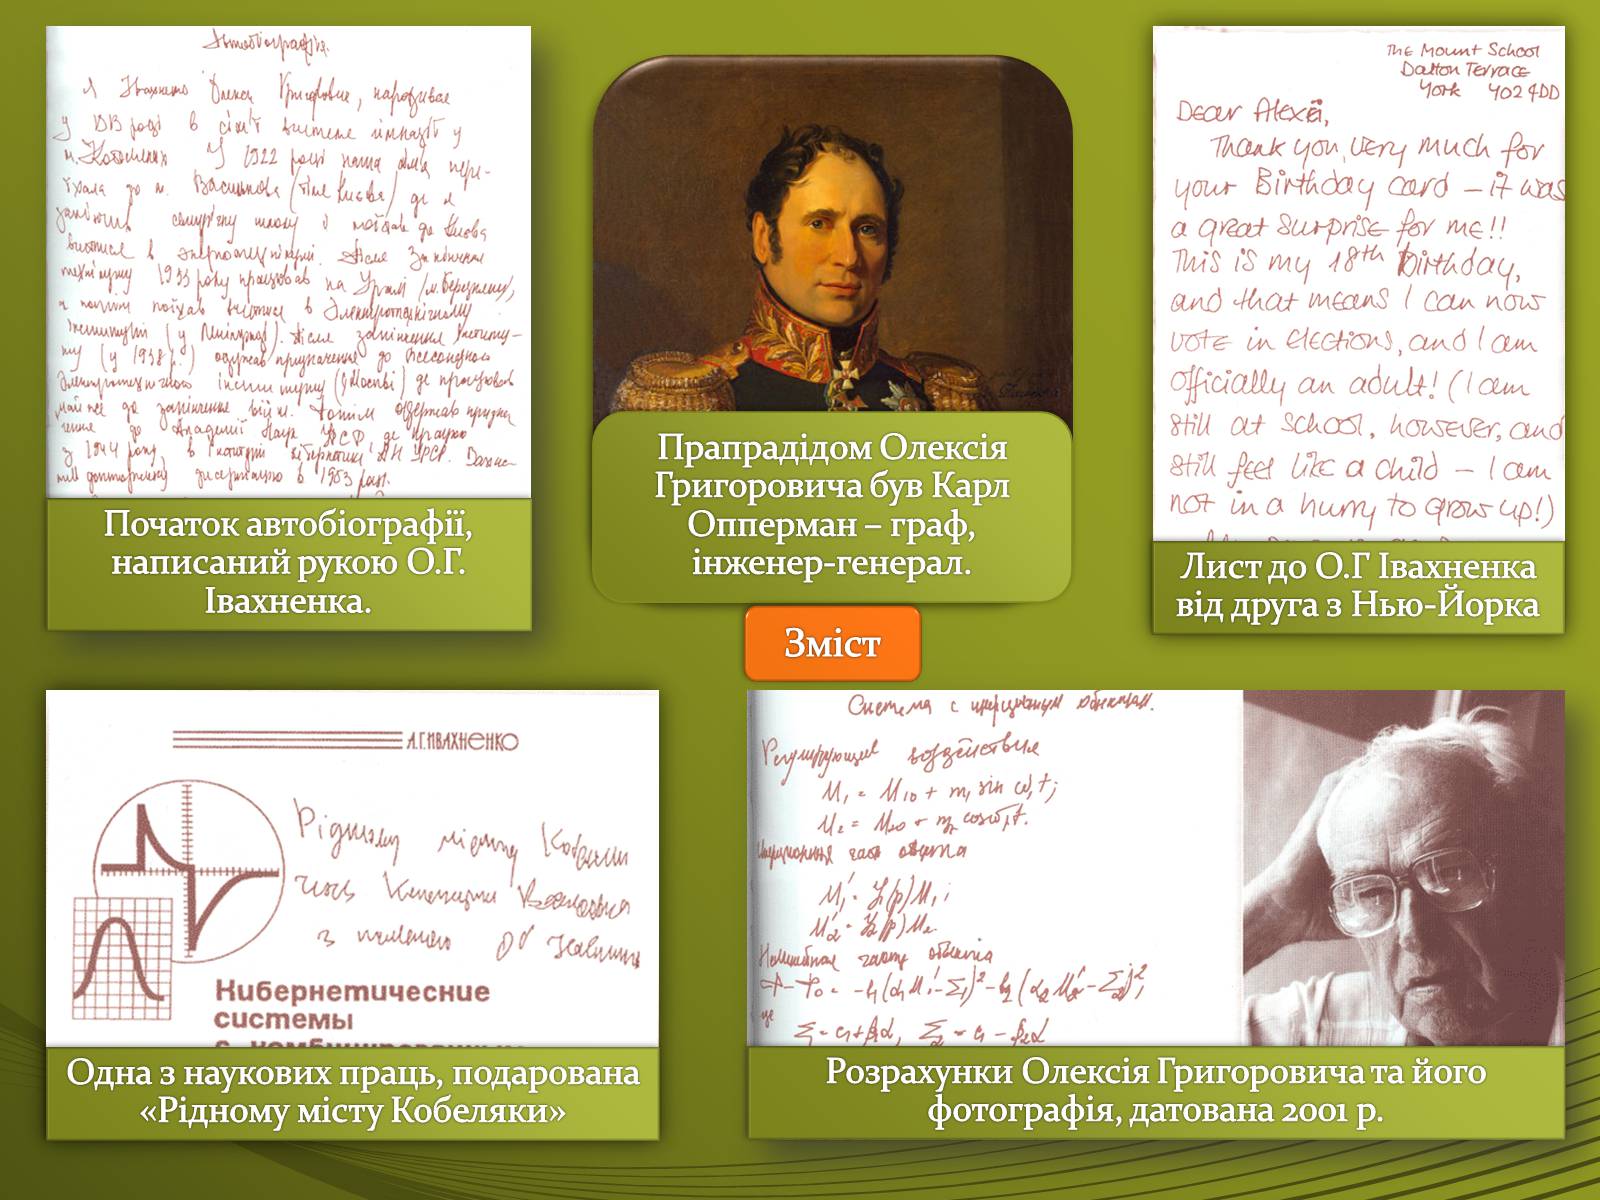 Автобіографія.
Я Івахненко Олекса Григорович, народився
у 1913 році в сім'ї вчителя гімназії у
м. Кобеляки У 1922 році наша сім'я пере-
їхала до м. (біля Києва) де я
закінчив семирічну школу і поїхав до Києва
вчитися в Після закінчення
технікуму 1933 року працював на Уралі (м. Березники),
а потім поїхав вчитися в Электротехнічному
інституті (у Ленінграді). Після закінчення інститу-
ту (у 1938 р.) одержав призначення до Всесоюзного
Электротехнічного інституту (у Москві) де працював
майже до закінчення війни. Потім одержав призна-
чення до Академії Наук УРСР, де працюю
з 1944 року, в Інституті кібернетики АН УРСР. Захис-
тив докторську дисертацію в 1953 році.
Початок автобіографії,
написаний рукою О.Г.
Івахненка.
Прапрадідом Олексія
Григоровича був Карл
Опперман – граф,
інженер-генерал.
The Mount School
Dalton Terrace
York YO2 4DD
Dear Alexëi,
Thank you, very much for
your Birthday card – it was
a great surprise for me!!
This is my 18th Birthday,
and that means I can now
vote in elections, and I am
officially an adult! (I am
still at school, however, and
still feel like a child – I am
not in a hurry to grow up!)
Лист до О.Г Івахненка
від друга з Нью-Йорка
Зміст
А.Г.ИВАХНЕНКО
Рідному місту Кобеляки
з пошаною
Кибернетические
системы
с комбинированным
Одна з наукових праць, подарована
«Рідному місту Кобеляки»
Система с инерционным объектом.
Регулирующие воздействия
M₁ = M₁₀ + m₁ sin ω₁t;
M₂ = M₂₀ + m₂ cos ω₁t.
Инерционная часть объекта
Розрахунки Олексія Григоровича та його
фотографія, датована 2001 р.